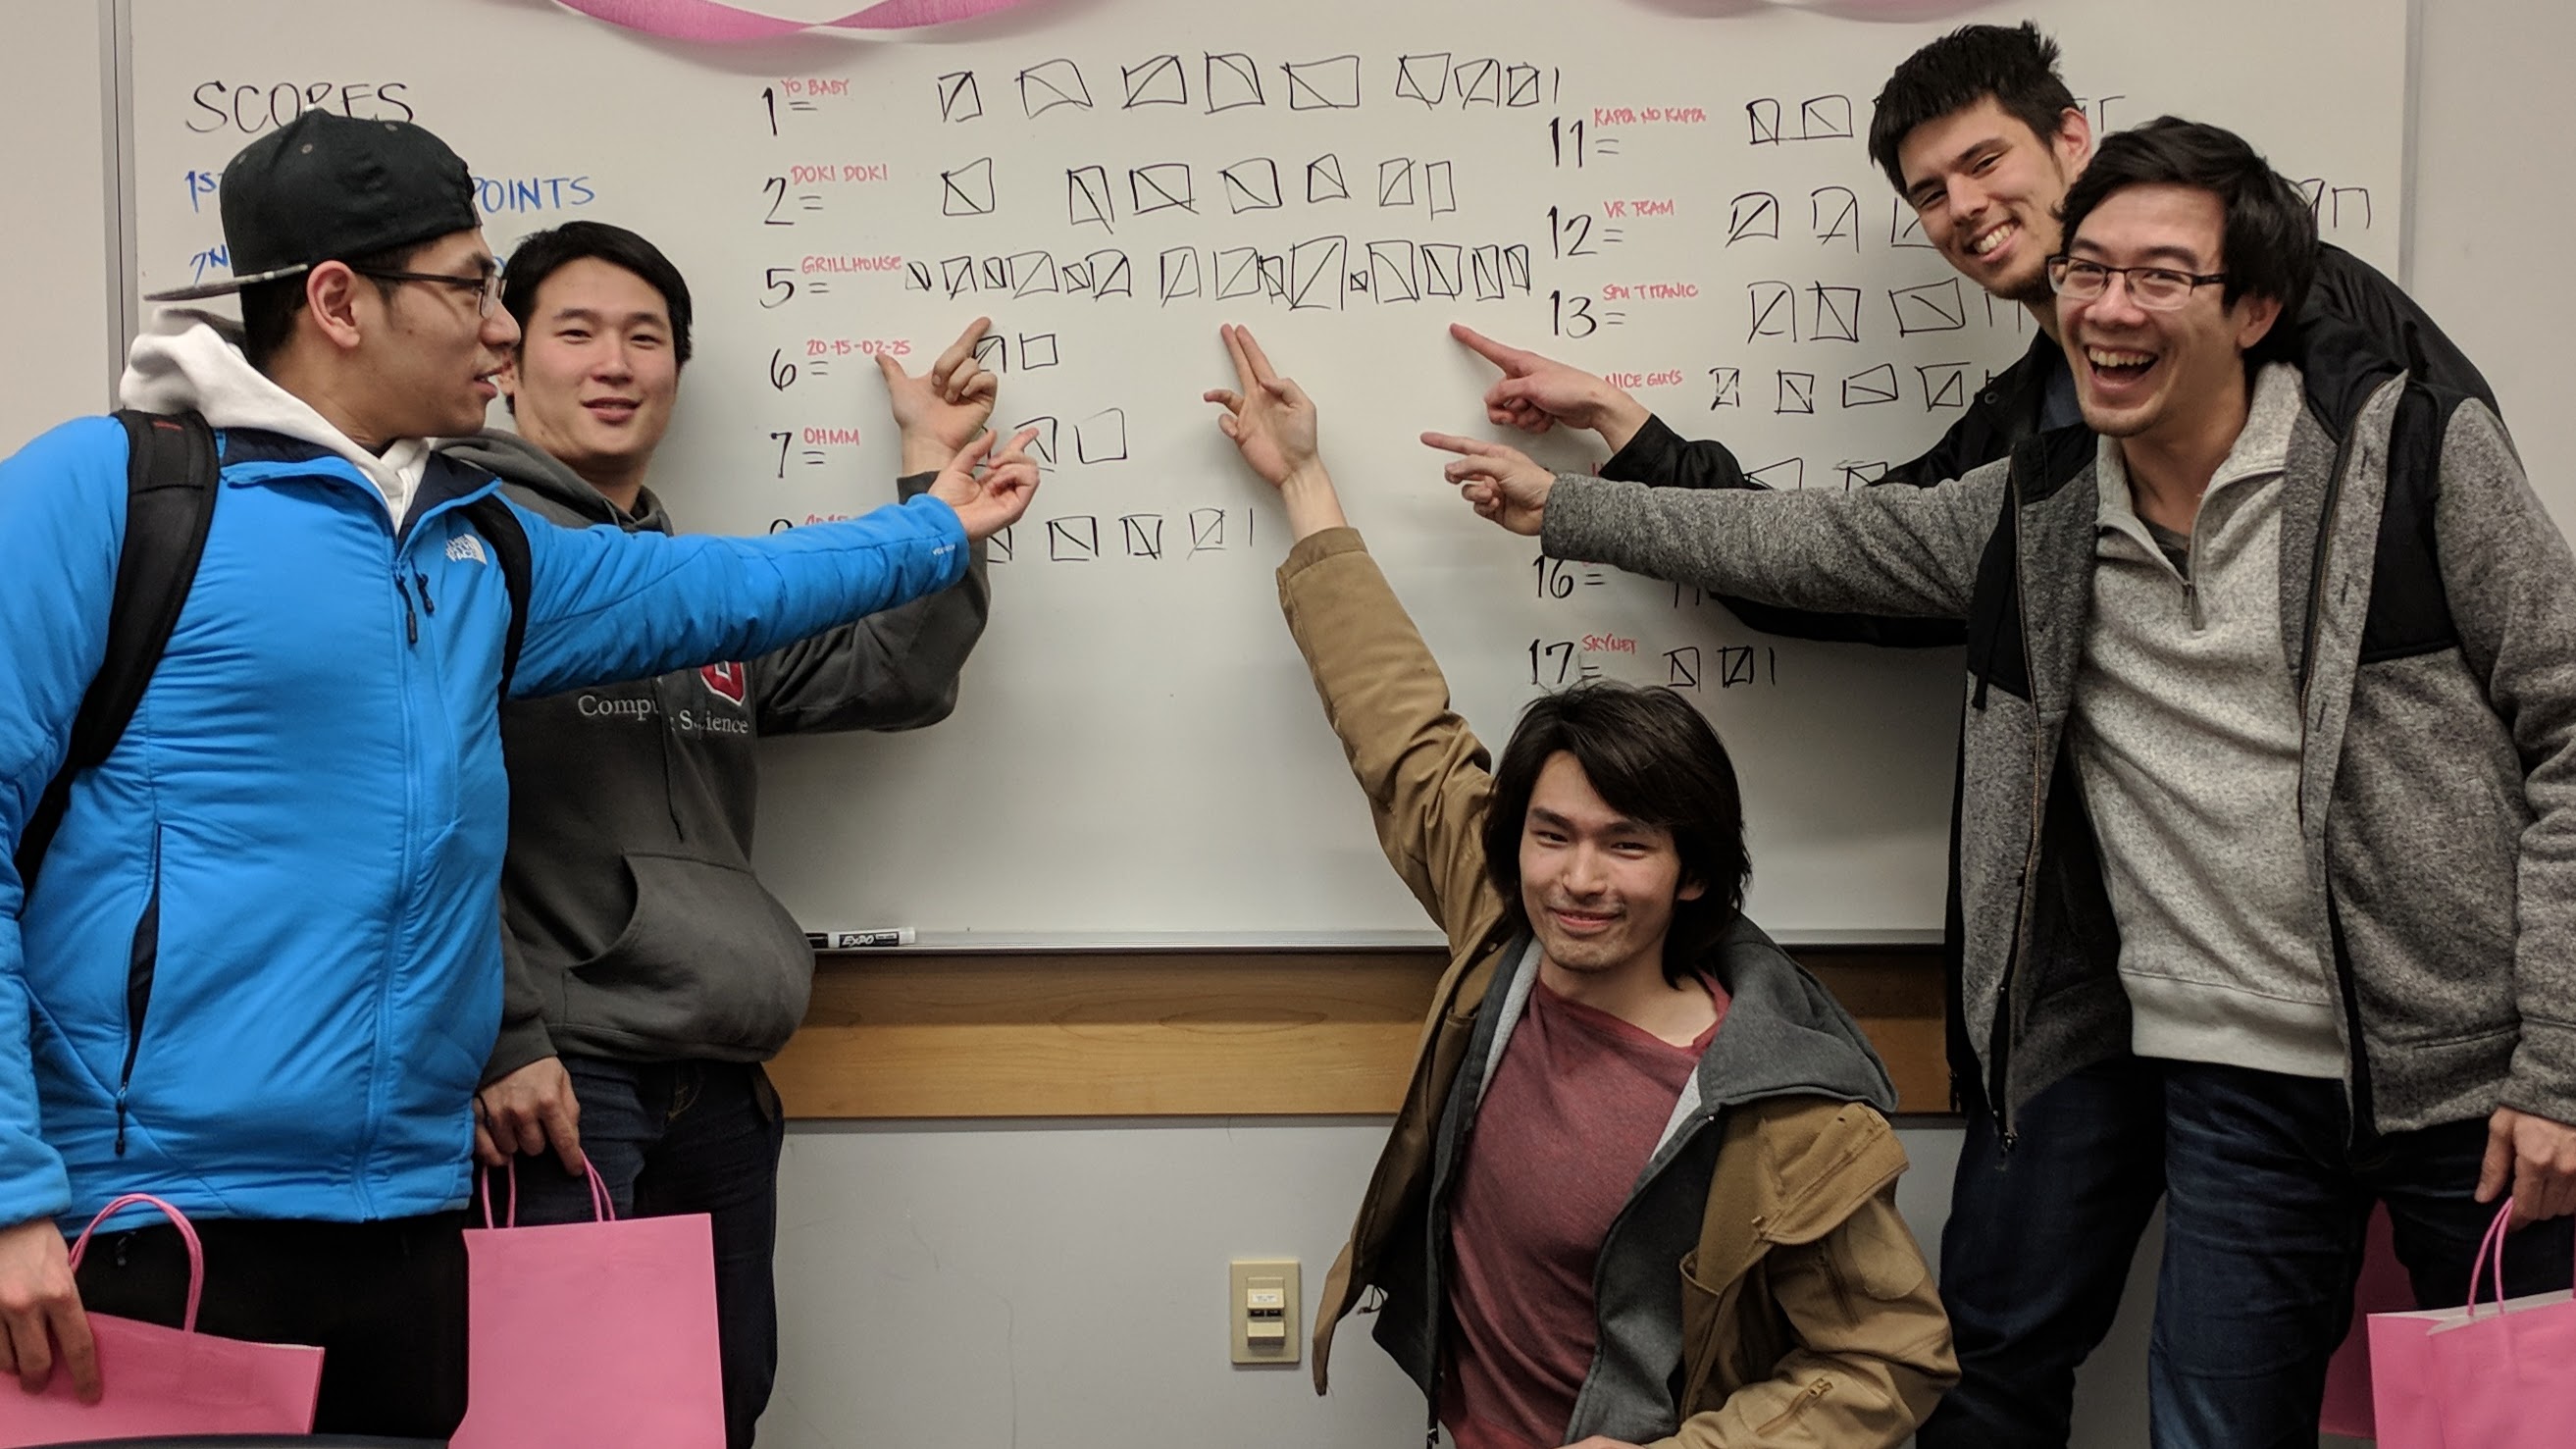 SCORES
1ST POINTS
2N
1 = YO BABY
2 = DOKI DOKI
5 = GRILLHOUSE
6 = 20-15-02-25
7 = OHMM
11 = KAPPA NO KAPPA
12 = VR TEAM
13 = SPU TITANIC
NICE GUYS
16 =
17 = SKYNET
THE NORTH FACE
Science
EXPO